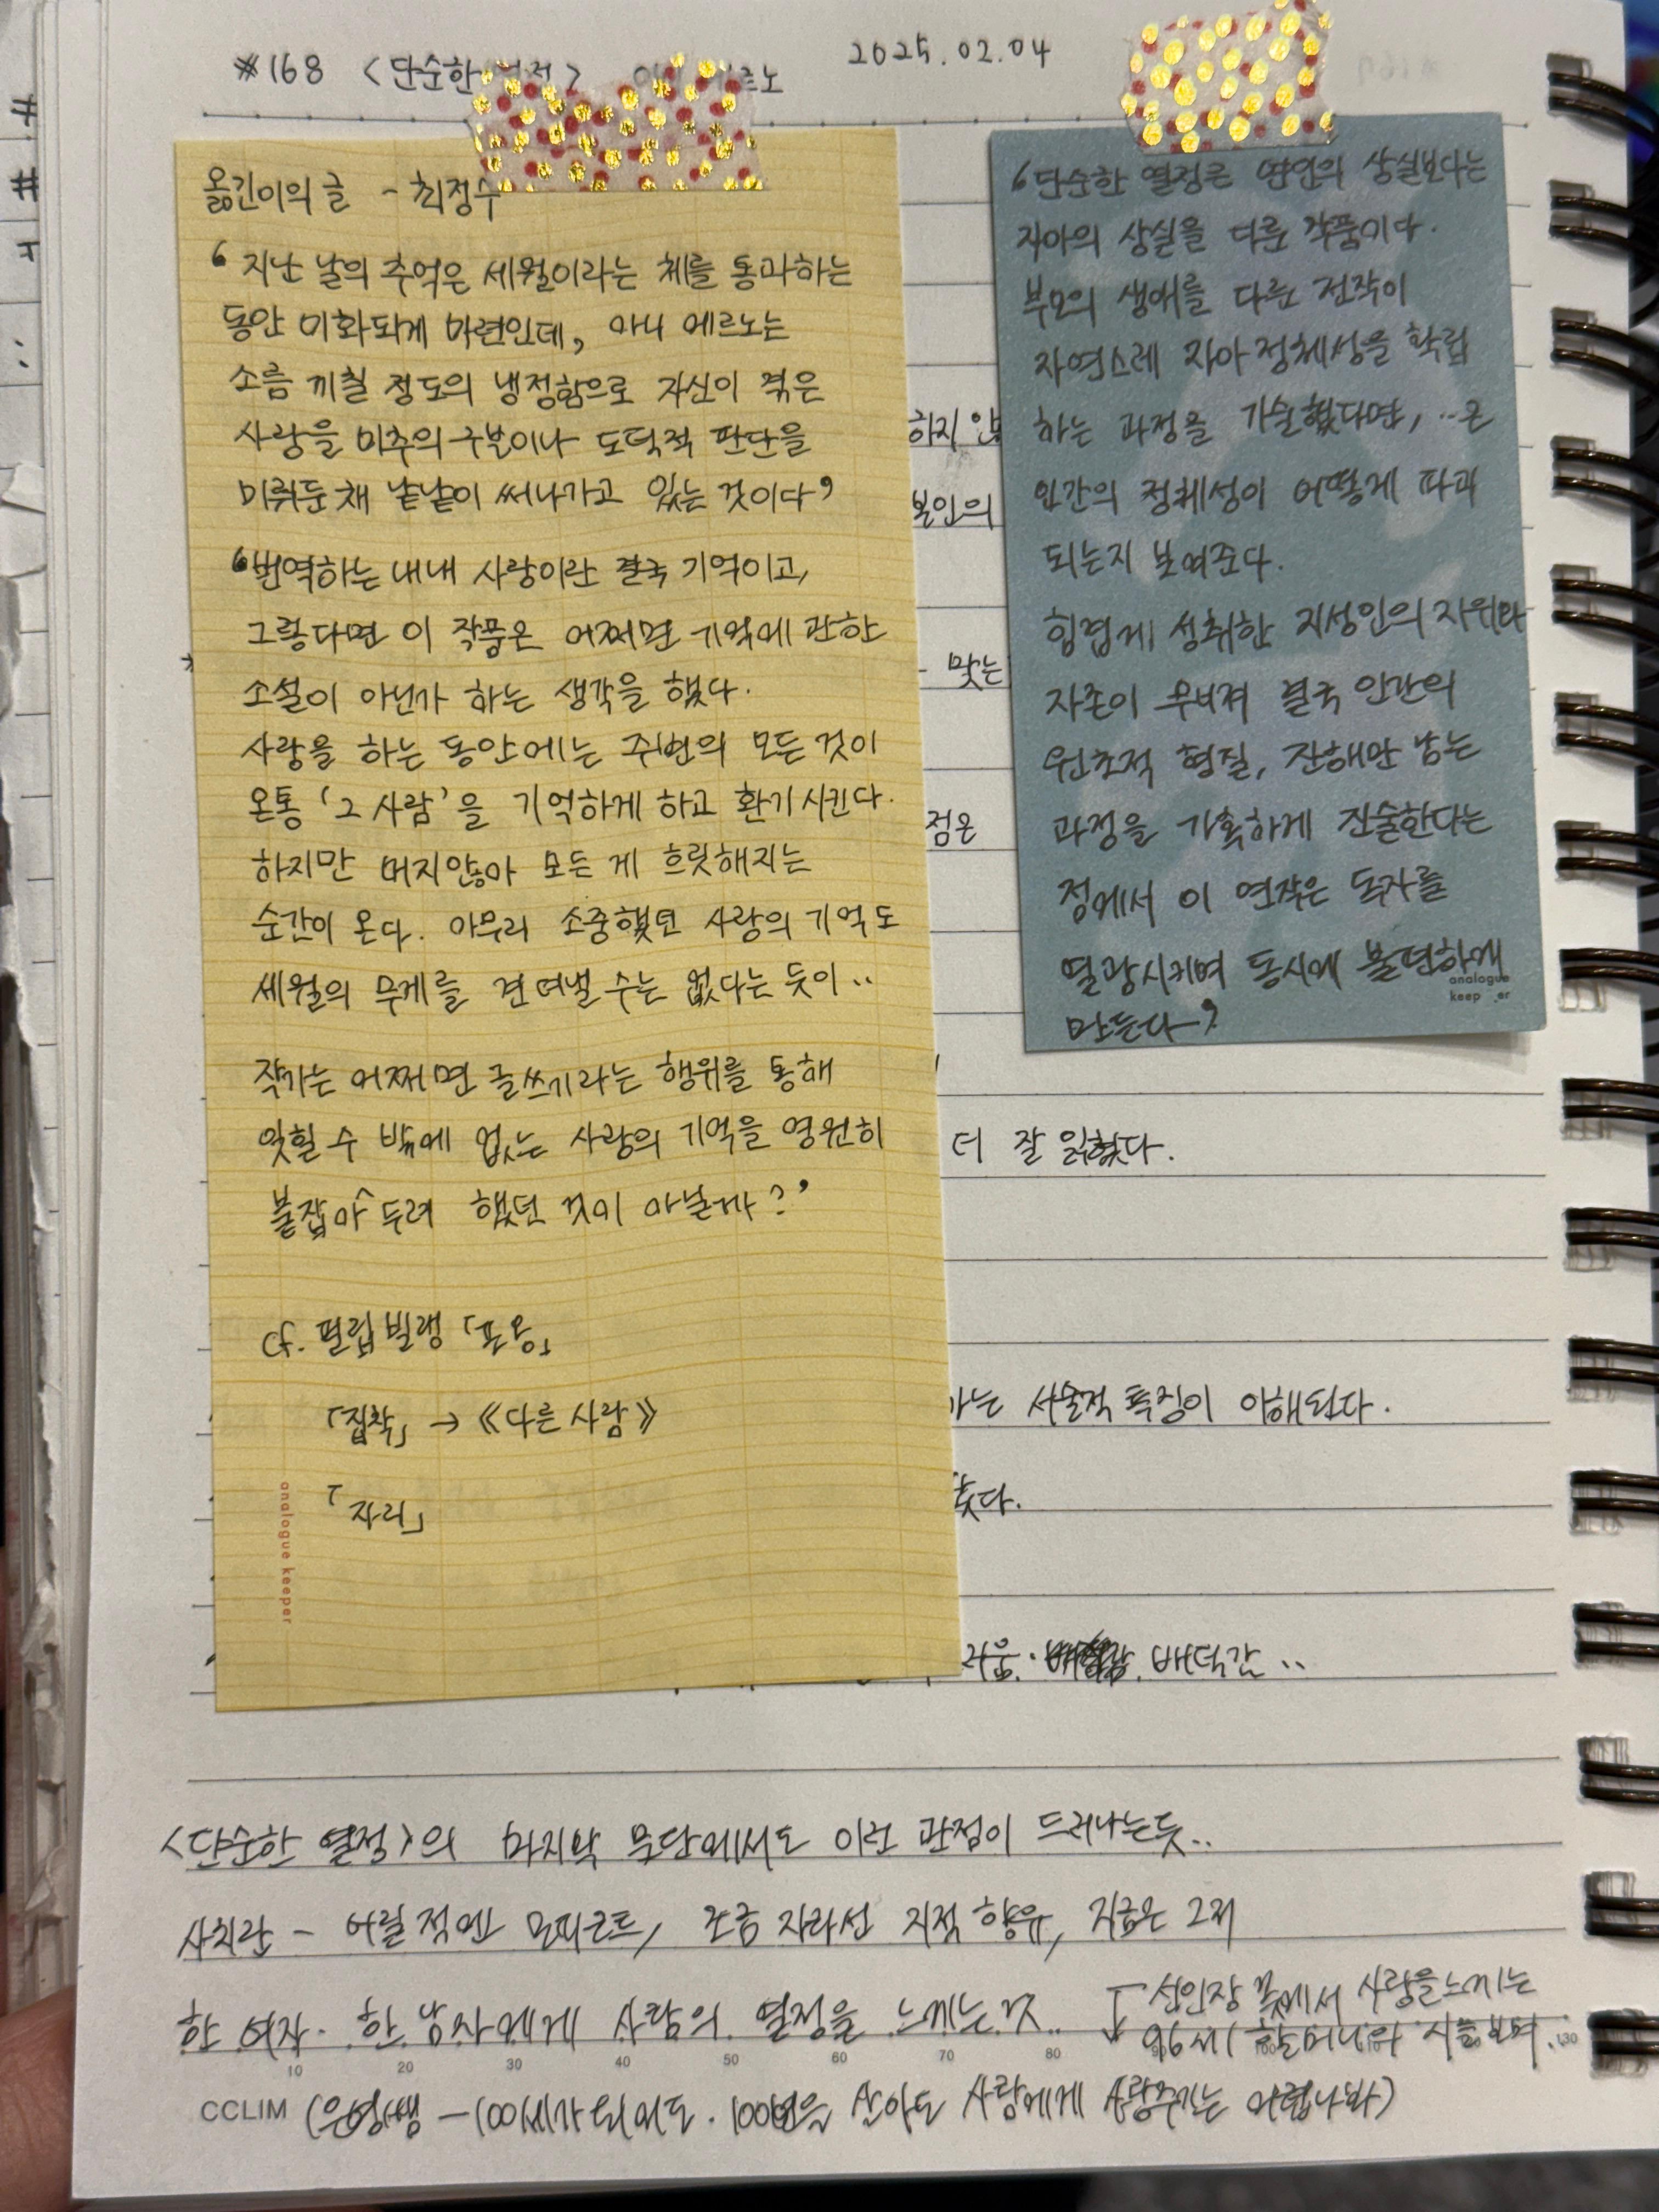 #168 <단순한 2025.02.04
옮긴이의 글 - 최정수
‘지난 날의 추억은 세월이라는 체를 통과하는
동안 미화되게 마련인데, 아니 에르노는
소름 끼칠 정도의 냉정함으로 자신이 겪은
사랑을 미추의 구분이나 도덕적 판단을
미뤄둔 채 낱낱이 써나가고 있는 것이다’
‘번역하는 내내 사랑이란 결국 기억이고,
그렇다면 이 작품은 어쩌면 기억에 관한
소설이 아닌가 하는 생각을 했다.
사랑을 하는 동안에는 주변의 모든 것이
온통 ‘그 사람’을 기억하게 하고 환기시킨다.
하지만 머지않아 모든 게 흐릿해지는
순간이 온다. 아무리 소중했던 사랑의 기억도
세월의 무게를 견뎌낼 수는 없다는 듯이..
작가는 어쩌면 글쓰기라는 행위를 통해
잊힐 수 밖에 없는 사랑의 기억을 영원히
붙잡아 두려 했던 것이 아닐까?’
cf. 필립 빌랭 「포옹」
「집착」 → 《다른 사람》
「자리」
analogue keeper
‘단순한 열정은 연인의 상실보다는
자아의 상실을 다룬 작품이다.
부모의 생애를 다룬 전작이
자연스레 자아 정체성을 확립
하는 과정을 기술했다면, ..은
인간의 정체성이 어떻게 파괴
되는지 보여준다.
힘겹게 성취한 지성인의 지위와
자존이 무너져 결국 인간의
원초적 형질, 잔해만 남는
과정을 가혹하게 진술한다는
점에서 이 연작은 독자를
열광시키며 동시에 불편하게
만든다’
analogue
keep er
하지 않
본인의
맞는
점은
더 잘 읽혔다.
가는 서술적 특징이 이해된다.
졌다.
러움. 배덕감..
<단순한 열정>의 마지막 문단에서도 이런 관점이 드러나는듯..
사치란 - 어릴 적엔 모피코트, 조금 자라선 지적 향유, 지금은 그저
한 여자. 한 남자에게 사랑의 열정을 느끼는 것..
선인장 꽃에서 사랑을 느끼는
96세 할머니의 시를 보며.
10 20 30 40 50 60 70 80 130
CCLIM (은영쌤 - 100세가 되어도. 100년을 살아도 사람에게 사랑주기는 어렵나봐)